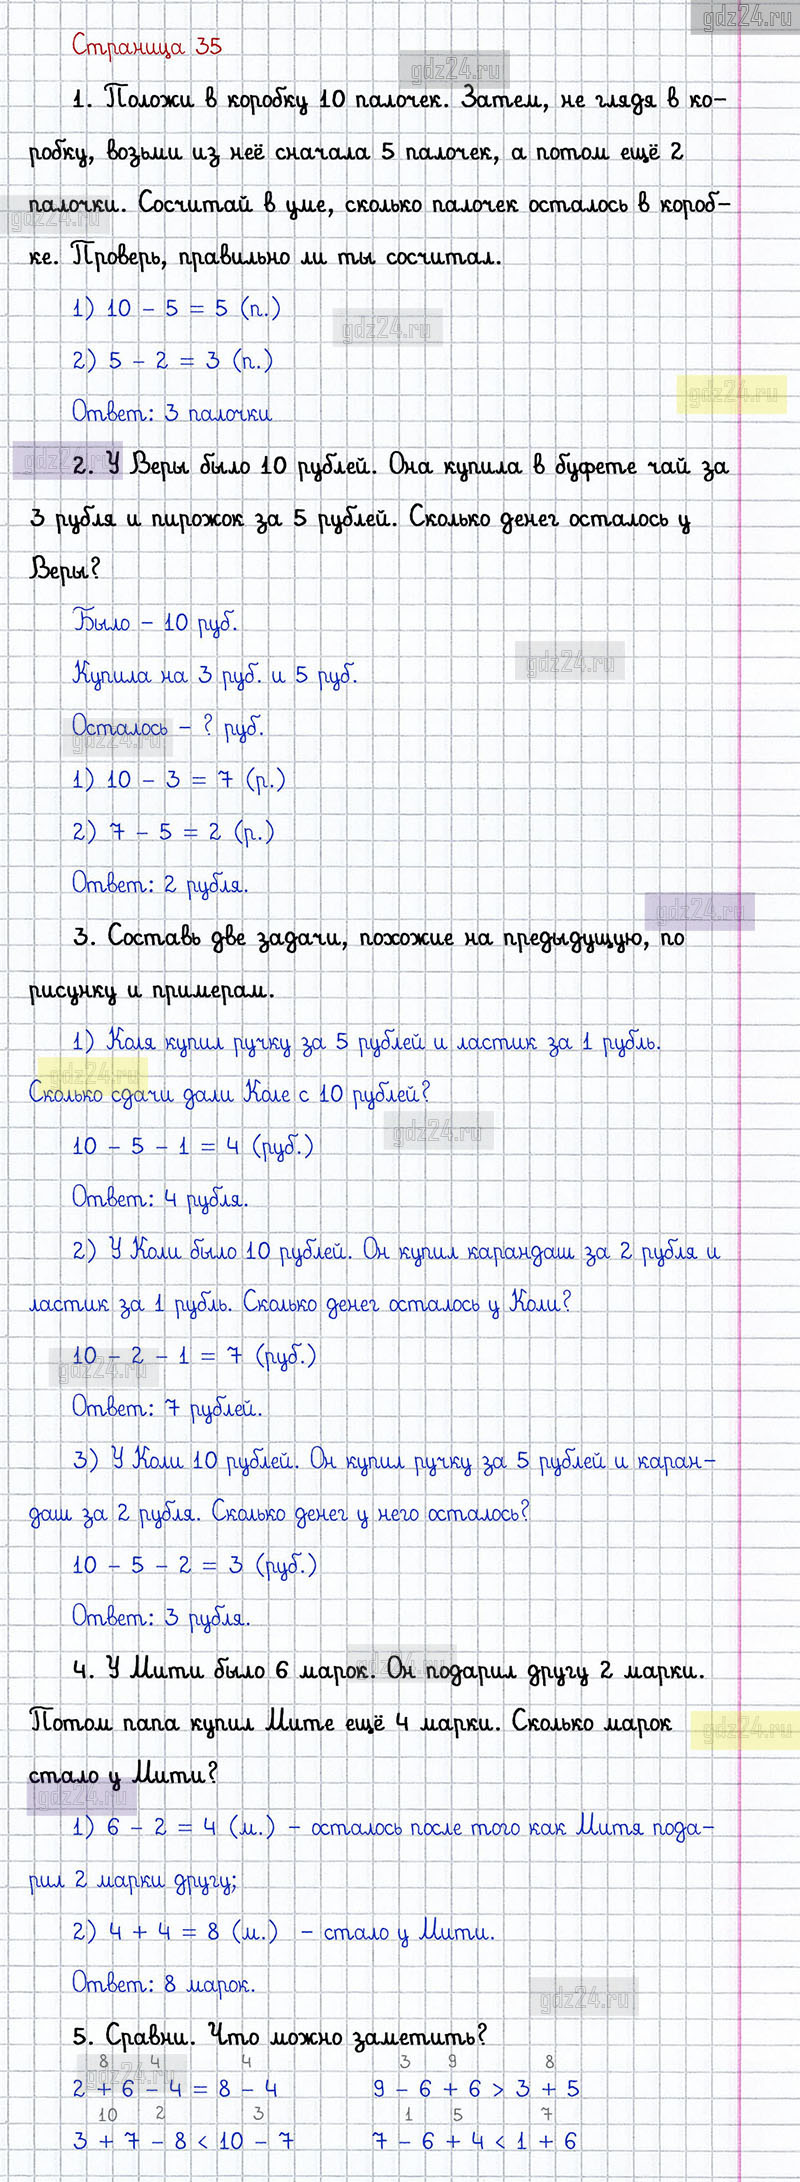 gdz24.ru
Страница 35
gdz24.ru
1. Положи в коробку 10 палочек. Затем, не глядя в ко-
робку, возьми из неё сначала 5 палочек, а потом ещё 2
палочки. Сосчитай в уме, сколько палочек осталось в короб-
gdz24.ru
ке. Проверь, правильно ли ты сосчитал.
1) 10 - 5 = 5 (п.)
gdz24.ru
2) 5 - 2 = 3 (п.)
gdz24.ru
Ответ: 3 палочки
gdz24.ru
2. У Веры было 10 рублей. Она купила в буфете чай за
3 рубля и пирожок за 5 рублей. Сколько денег осталось у
Веры?
Было - 10 руб.
gdz24.ru
Купила на 3 руб. и 5 руб.
Осталось - ? руб.
gdz24.ru
1) 10 - 3 = 7 (р.)
2) 7 - 5 = 2 (р.)
Ответ: 2 рубля.
gdz24.ru
3. Составь две задачи, похожие на предыдущую, по
рисунку и примерам.
1) Коля купил ручку за 5 рублей и ластик за 1 рубль.
gdz24.ru
Сколько сдачи дали Коле с 10 рублей?
gdz24.ru
10 - 5 - 1 = 4 (руб.)
Ответ: 4 рубля.
2) У Коли было 10 рублей. Он купил карандаш за 2 рубля и
ластик за 1 рубль. Сколько денег осталось у Коли?
10 - 2 - 1 = 7 (руб.)
gdz24.ru
Ответ: 7 рублей.
3) У Коли 10 рублей. Он купил ручку за 5 рублей и каран-
даш за 2 рубля. Сколько денег у него осталось?
10 - 5 - 2 = 3 (руб.)
Ответ: 3 рубля.
gdz24.ru
4. У Мити было 6 марок. Он подарил другу 2 марки.
Потом папа купил Мите ещё 4 марки. Сколько марок
gdz24.ru
стало у Мити?
gdz24.ru
1) 6 - 2 = 4 (м.) - осталось после того как Митя пода-
рил 2 марки другу;
2) 4 + 4 = 8 (м.) - стало у Мити.
Ответ: 8 марок.
gdz24.ru
5. Сравни. Что можно заметить?
8 4 4 3 9 8
gdz24.ru
2 + 6 - 4 = 8 - 4 9 - 6 + 6 > 3 + 5
10 2 3 1 5 7
3 + 7 - 8 < 10 - 7 7 - 6 + 4 < 1 + 6